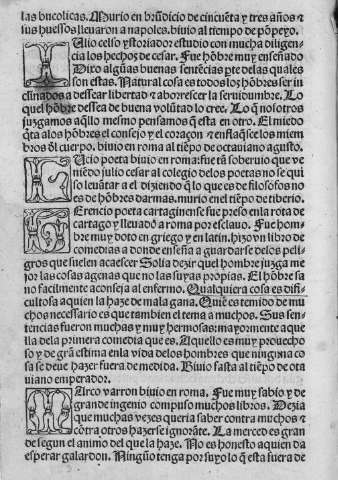 las bucolicas. Murio en brũdicio de cincuẽta y tres años ⁊
sus huessos lleuaron a napoles. biuio al tiempo de põpeyo.
Iulio celso ystoriador estudio con mucha diligen
cia los hechos de cesar. Fue hõbre muy enseñado
Dixo algũas buenas sentẽcias pte delas quales
son estas. Natural cosa es todos los hõbres ser in
clinados a dessear libertad ⁊ aborrescer la seruidumbre. Lo
quel hõbre dessea de buena volũtad lo cree. Lo q̃ nosotros
juzgamos aq̃llo mesmo pensamos q̃ esta en otro. El miedo
q̃ta alos hõbres el consejo y el coraçon ⁊ enflaq̃sce los miem
bros dl cuerpo. biuio en roma al tiẽpo de octauiano agusto.
Lucio poeta biuio en roma: fue tã soberuio que ve
niẽdo julio cesar al colegio delos poetas no se qui
so leuãtar a el diziendo q̃ lo que es de filosofos no
es de hõbres darmas. murio en el tiẽpo de tiberio.
Terencio poeta cartaginense fue preso enla rota de
cartago y lleuado a roma por esclauo. Fue hom
bre muy doto en griego y en latin. hizo vn libro de
comedias a donde enseña a guardarse delos peli
gros que suelen acaescer Solia dezir quel hombre juzga me
jor las cosas agenas que no las suyas propias. El hõbre sa
no facilmente aconseja al enfermo. Qualquiera cosa es difi
cultosa aquien la haze de mala gana. Quiẽ es temido de mu
chos necessario es que tambien el tema a muchos. Sus sen
tencias fueron muchas y muy hermosas: mayormente aque
lla dela primera comedia que es. Aquello es muy prouecho
so y de grã estima enla vida delos hombres que ninguna co
sa se deue hazer fuera de medida. Biuio fasta al tiẽpo de ota
uiano emperador.
Marco varron biuio en roma. Fue muy sabio y de
grande ingenio compuso muchos libros. Dezia
que muchas vezes queria saber contra muchos ⁊
cõtra otros hazerse ignorãte. La merced es gran
de segun el animo del que la haze. No es honesto aquien da
esperar galardon. Ningũo tenga por suyo lo q̃ esta fuera de